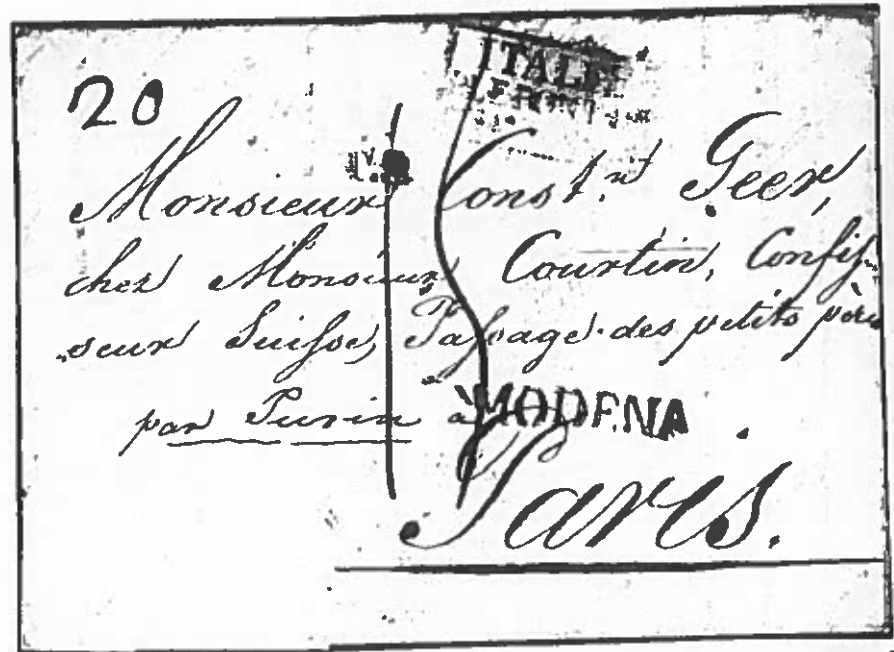 20
ITALIE
Monsieur Const.nt Geer,
chez Monsieur Courtin, Confis-
seur Suisse, Passage des petits pères
par Turin à MODENA
Paris.